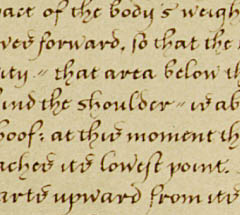 pact of the body's weigh
ved forward, so that the
ity - that area below th
ind the shoulder - is ab
hoof: at this moment th
aches its lowest point.
arts upward from its